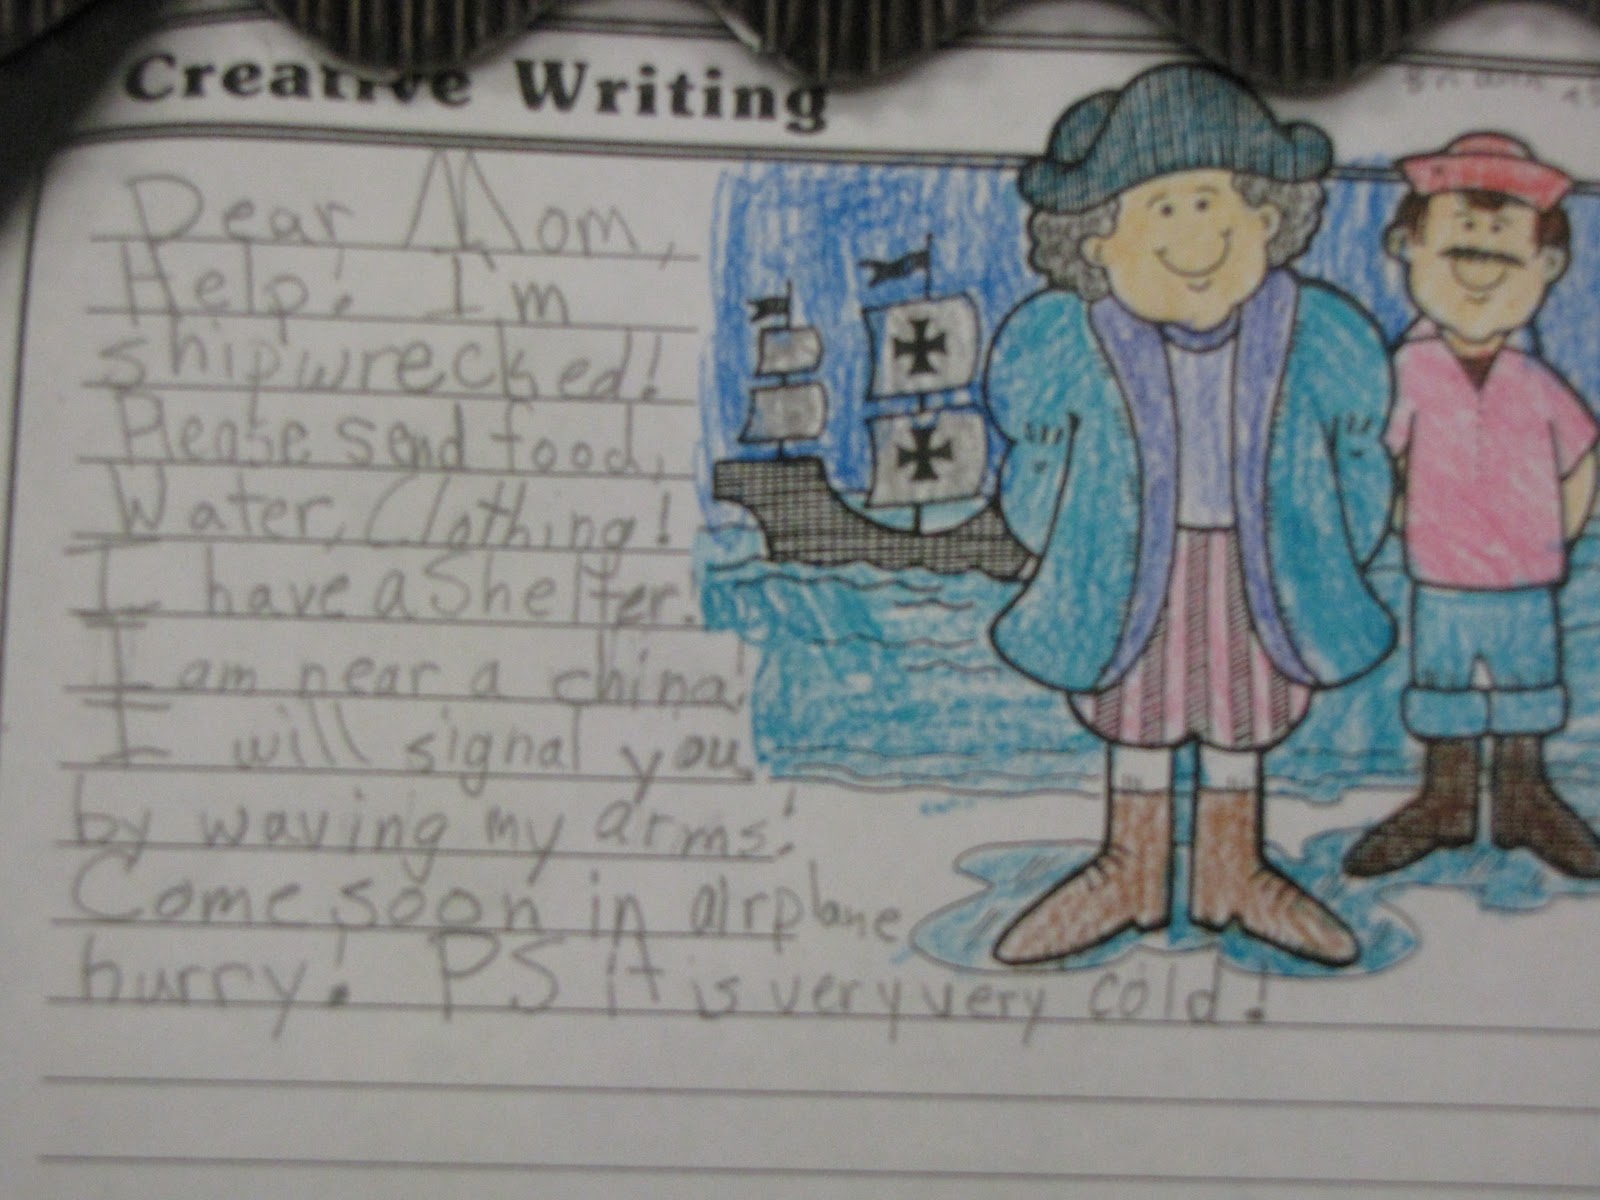 Creative Writing
Dear Mom,
Help! I'm
shipwrecked!
Please send food,
Water, Clothing!
I have a Shelter.
I am near a china!
I will signal you
by waving my arms!
Come soon in airplane
hurry! PS It is very very cold!